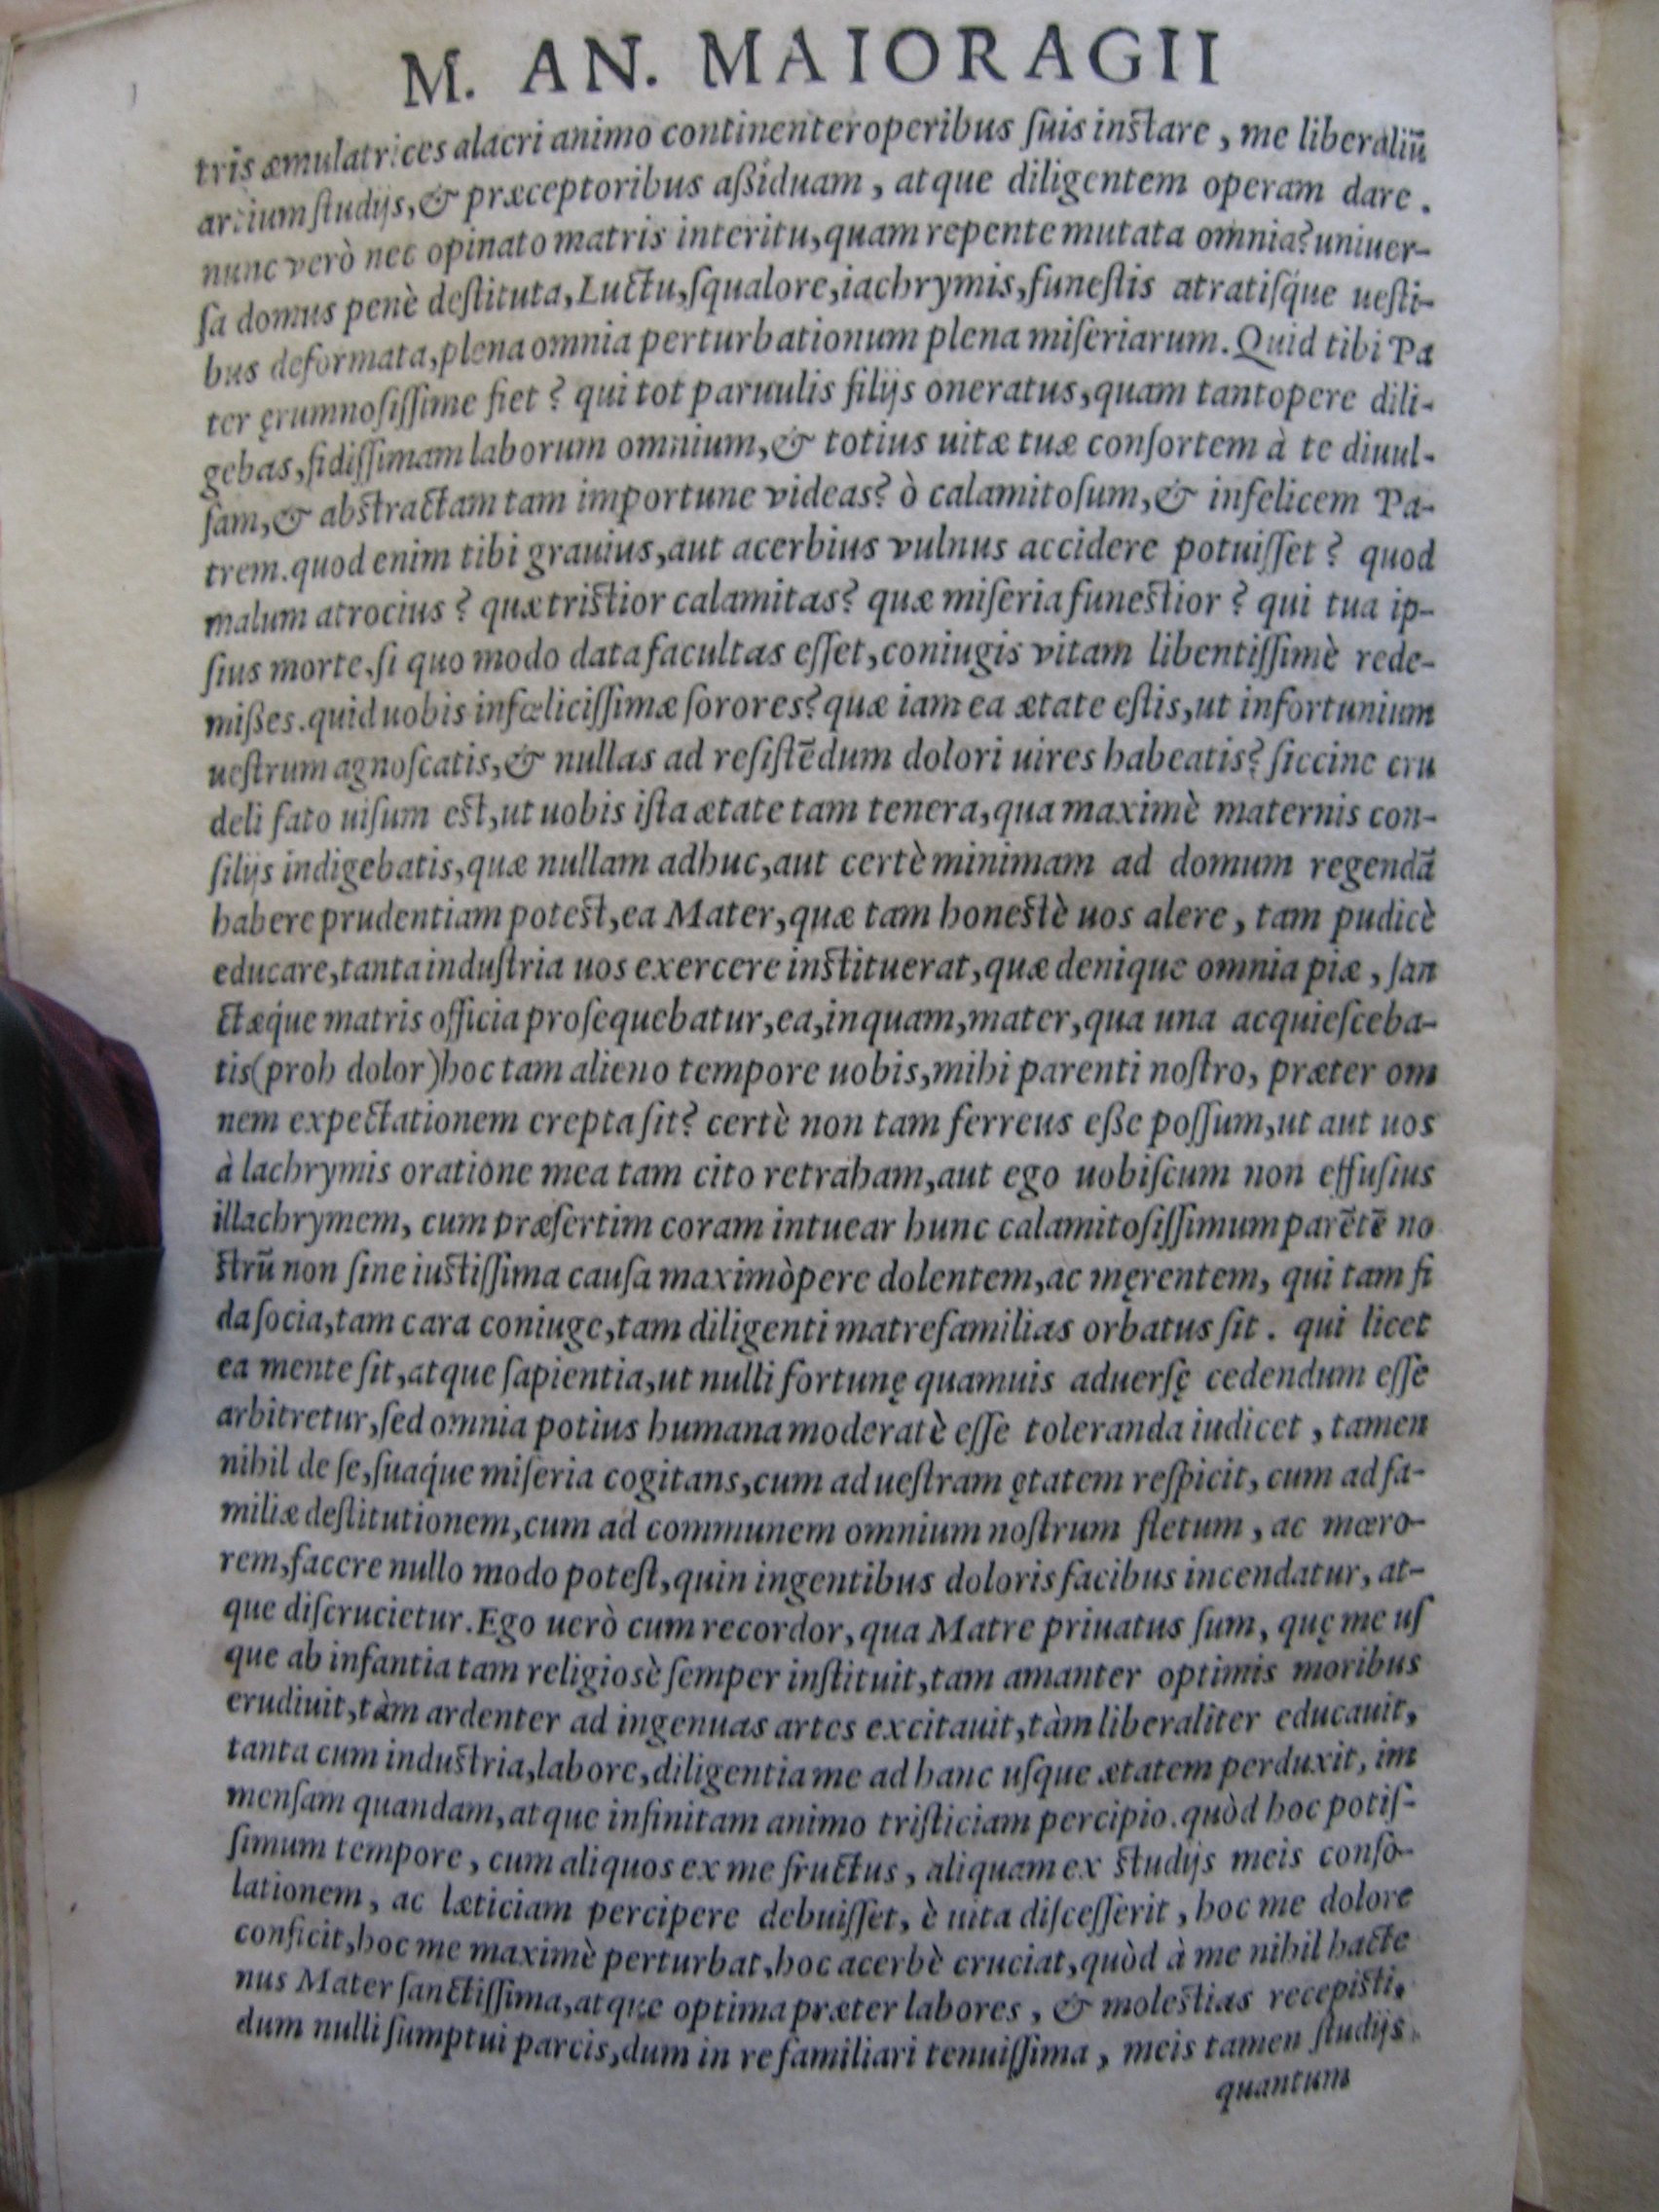 M. AN. MAIORAGII
tris æmulatrices alacri animo continenter operibus ſuis inſtare, me liberaliū
artium ſtudijs, & præceptoribus aßiduam, atque diligentem operam dare.
nunc verò nec opinato matris interitu, quam repente mutata omnia? uniuer-
ſa domus penè deſtituta, Luctu, ſqualore, iachrymis, funeſtis atratiſq́ue ueſti-
bus deformata, plena omnia perturbationum plena miſeriarum. Quid tibi Pa
ter ęrumnoſiſſime fiet? qui tot paruulis filijs oneratus, quam tantopere dili-
gebas, fidiſſimam laborum omnium, & totius uitæ tuæ conſortem à te diuul-
ſam, & abſtractam tam importune videas? ò calamitoſum, & infelicem Pa-
trem. quod enim tibi grauius, aut acerbius vulnus accidere potuiſſet? quod
malum atrocius? quæ triſtior calamitas? quæ miſeria funeſtior? qui tua ip-
ſius morte, ſi quo modo data facultas eſſet, coniugis vitam libentiſſimè rede-
mißes. quid uobis infœliciſſimæ ſorores? quæ iam ea ætate eſtis, ut infortunium
ueſtrum agnoſcatis, & nullas ad reſiſtēdum dolori uires habeatis? ſiccine cru
deli fato uiſum eſt, ut uobis iſta ætate tam tenera, qua maximè maternis con-
ſilijs indigebatis, quæ nullam adhuc, aut certè minimam ad domum regendā
habere prudentiam poteſt, ea Mater, quæ tam honeſtè uos alere, tam pudicè
educare, tanta induſtria uos exercere inſtituerat, quæ denique omnia piæ, ſan
ctæq́ue matris officia proſequebatur, ea, inquam, mater, qua una acquieſceba-
tis (proh dolor) hoc tam alieno tempore uobis, mihi parenti noſtro, præter om
nem expectationem erepta ſit? certè non tam ferreus eße poſſum, ut aut uos
à lachrymis oratione mea tam cito retraham, aut ego uobiſcum non effuſius
illachrymem, cum præſertim coram intuear hunc calamitoſiſſimum parētē no
ſtrū non ſine iuſtiſſima cauſa maximòpere dolentem, ac męrentem, qui tam fi
da ſocia, tam cara coniuge, tam diligenti matrefamilias orbatus ſit. qui licet
ea mente ſit, atque ſapientia, ut nulli fortunę quamuis aduerſę cedendum eſſe
arbitretur, ſed omnia potius humana moderatè eſſe toleranda iudicet, tamen
nihil de ſe, ſuaq́ue miſeria cogitans, cum ad ueſtram ętatem reſpicit, cum ad fa-
miliæ deſtitutionem, cum ad communem omnium noſtrum fletum, ac mœro-
rem, facere nullo modo poteſt, quin ingentibus doloris facibus incendatur, at-
que diſcrucietur. Ego uerò cum recordor, qua Matre priuatus ſum, quę me uſ
que ab infantia tam religiosè ſemper inſtituit, tam amanter optimis moribus
erudiuit, tàm ardenter ad ingenuas artes excitauit, tàm liberaliter educauit,
tanta cum induſtria, labore, diligentia me ad hanc uſque ætatem perduxit, im
menſam quandam, atque infinitam animo triſticiam percipio. quòd hoc potiſ-
ſimum tempore, cum aliquos ex me fructus, aliquam ex ſtudijs meis conſo-
lationem, ac læticiam percipere debuiſſet, è uita diſceſſerit, hoc me dolore
conficit, hoc me maximè perturbat, hoc acerbè cruciat, quòd à me nihil hacte
nus Mater ſanctiſſima, atque optima præter labores, & moleſtias recepiſti,
dum nulli ſumptui parcis, dum in re familiari tenuiſſima, meis tamen ſtudijs
quantum